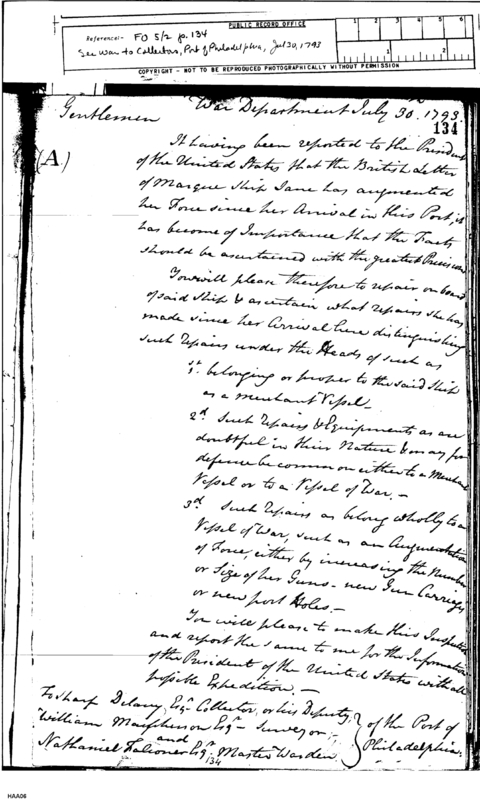 PUBLIC RECORD OFFICE
1 2 3 4 5 6
Reference:- FO 5/2 p. 134
See War to Collectors, Port of Philadelphia, Jul 30, 1793
1 2
COPYRIGHT - NOT TO BE REPRODUCED PHOTOGRAPHICALLY WITHOUT PERMISSION
War Department July 30. 1793.
Gentlemen
134
(A)
It having been reported to the President
of the United States that the British Letter
of Marque Ship Jane has augmented
her Force since her Arrival in this Port, it
has become of Importance that the Facts
should be ascertained with the greatest Precision
You will please therefore to repair on board
of said Ship & ascertain what repairs she has
made since her Arrival here distinguishing
such repairs under the Heads of such as
1st. belonging or proper to the said Ship
as a merchant Vessel_
2d. Such repairs & Equipments as are
doubtful in their Nature & may for
defense be common either to a Merchant
Vessel or to a Vessel of War,_
3d. Such Repairs as belong wholly to a
Vessel of War, such as an Augmentation
of Force, either by increasing the Number
or Size of her Guns_ new Gun Carriages
or new port Holes._
You will please to make this Inspection
and report the same to me for the Information
of the President of the United States with all
possible Expedition._
To Sharp Delany, Esqr. Collector, or his Deputy,
William Macpherson Esqr_ Surveyor,_
and
Nathaniel Falconer Esqr. Master Warden
} of the Port of
Philadelphia.
134
HAA06